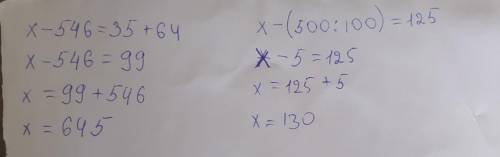 x - 546 = 35 + 64
x - 546 = 99
x = 99 + 546
x = 645
x - (500 : 100) = 125
x - 5 = 125
x = 125 + 5
x = 130